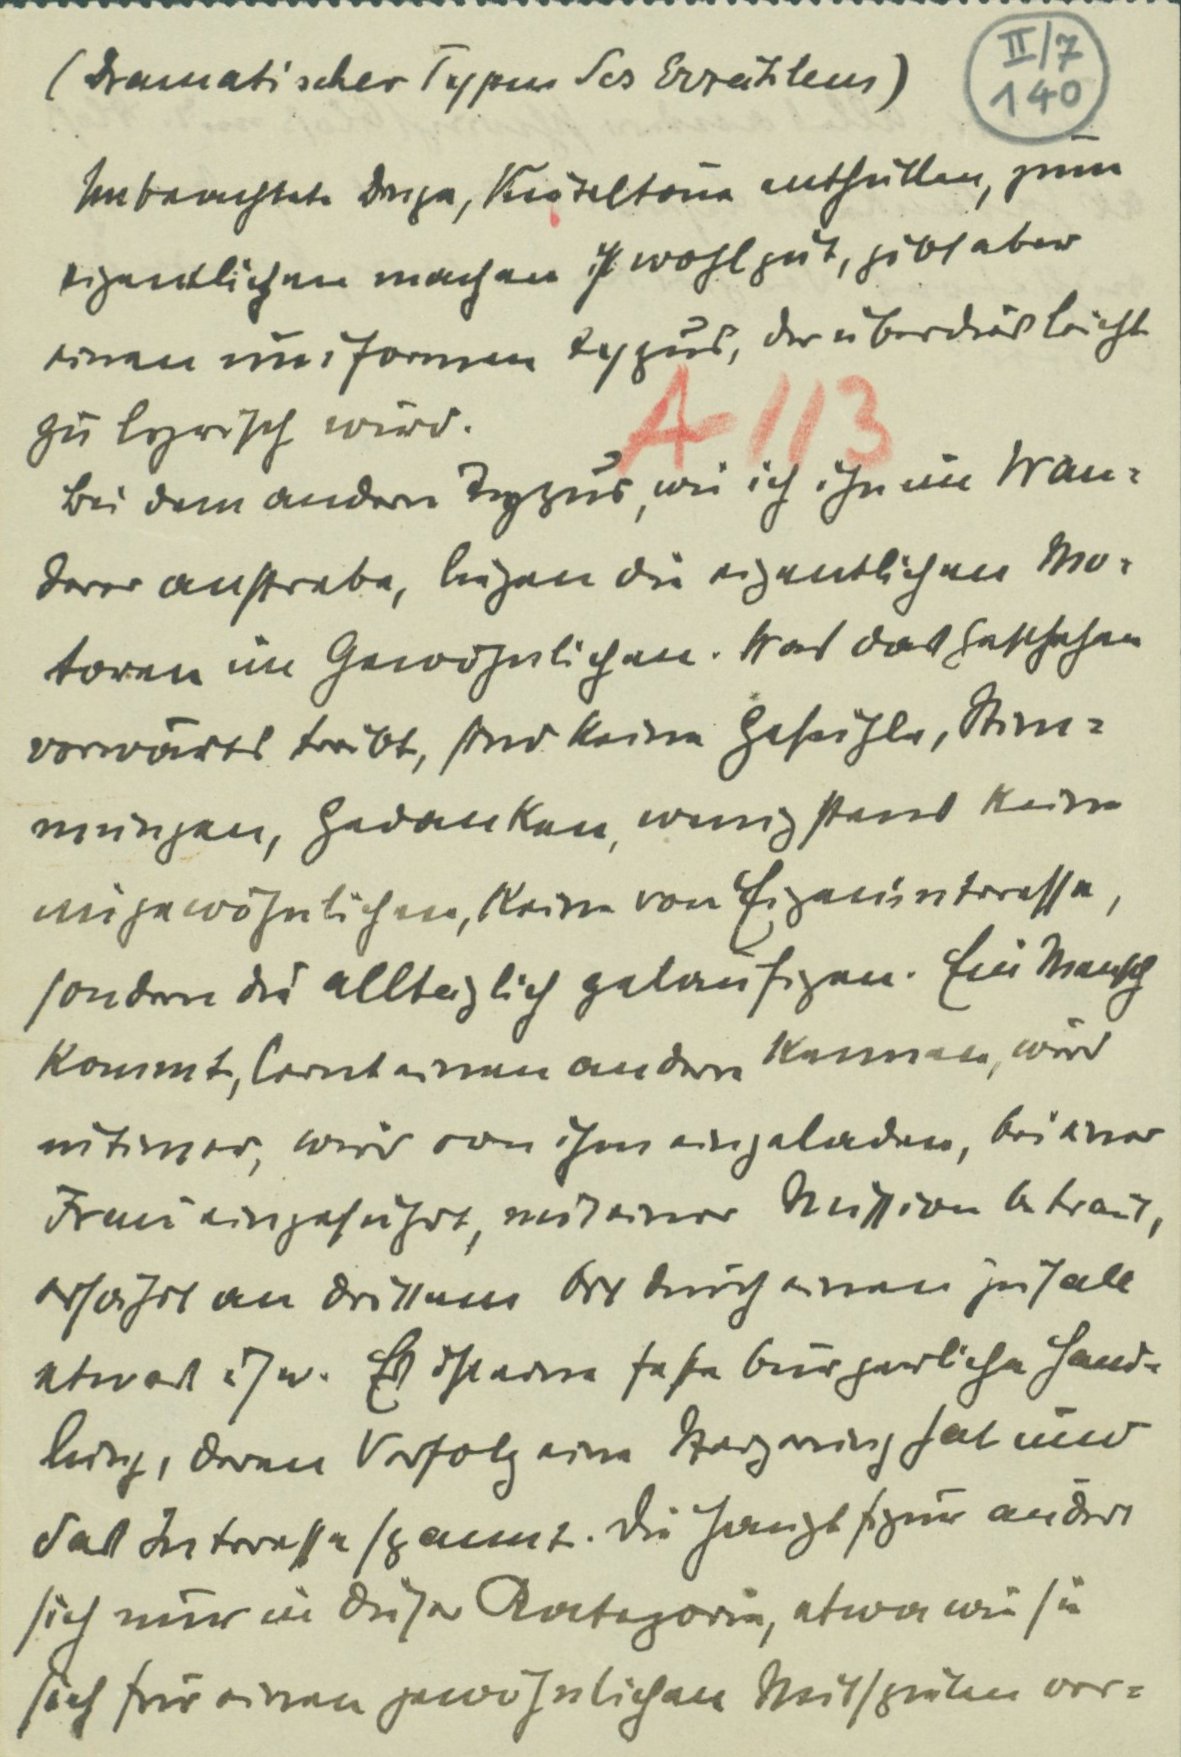 (Dramatischer Typus des Erzählens)
II/7
140
Unbeachtete Dinge, enthüllen, zum
eigentlichen machen ist wohl gut, gibt aber
einen uniformen Typus, der überdies leicht
zu lyrisch wird.
A 113
Bei dem andern Typus, wie ich ihn im Wan=
derer anstrebe, liegen die eigentlichen Mo=
toren im Gewöhnlichen. Was das Geschehen
vorwärts treibt, sind keine Gefühle, Stim=
mungen, Gedanken, wenigstens keine
ungewöhnlichen, keine von Eigeninteresse,
sondern die alltäglich geläufigen. Ein Mensch
kommt, lernt einen andern kennen, wird
intimer, wird von ihm eingeladen, bei einer
Frau eingeführt, mit einer Mission betraut,
erfährt an drittem Ort durch einen Zufall
etwas usw. Es ist eine feste bürgerliche Hand=
lung, deren Verfolg eine Steigerung hat und
das Interesse spannt. Die Hauptfigur ändert
sich nur in dieser Kategorie, etwa wie sie
sich für einen gewöhnlichen Mitspieler ver=